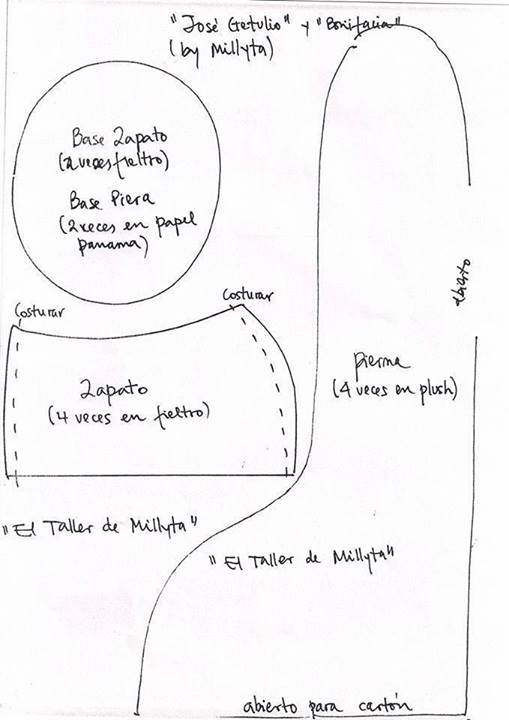 "José Getulio" y "Bonifacia"
(by Millyta)
Base Zapato
(2 veces fieltro)
Base Piera
(2 veces en papel
panama)
Costurar
Costurar
Zapato
(4 veces en fieltro)
abierto
pierna
(4 veces en plush)
"El Taller de Millyta"
"El Taller de Millyta"
abierto para cartón